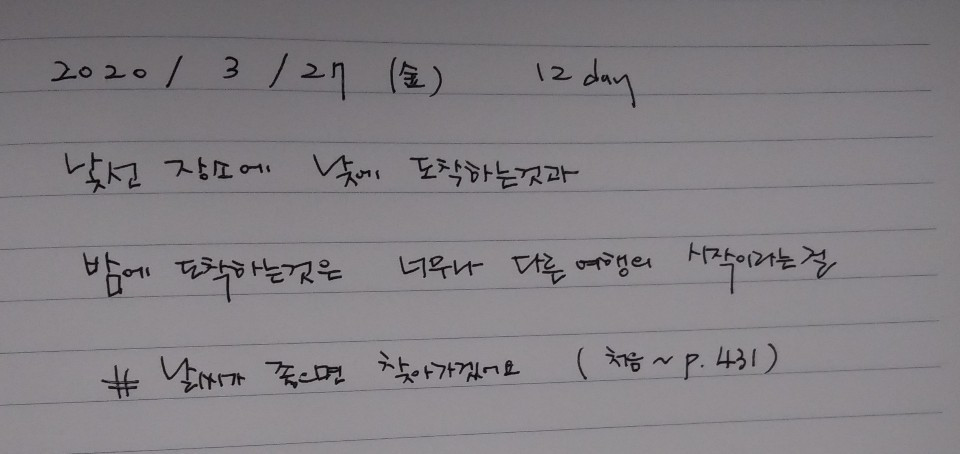 2020 / 3 / 27 (金) 12 day
낯선 장소에 낮에 도착하는것과
밤에 도착하는것은 너무나 다른 여행의 시작이라는걸
# 날씨가 좋으면 찾아가겠어요 (처음 ~ p. 431)